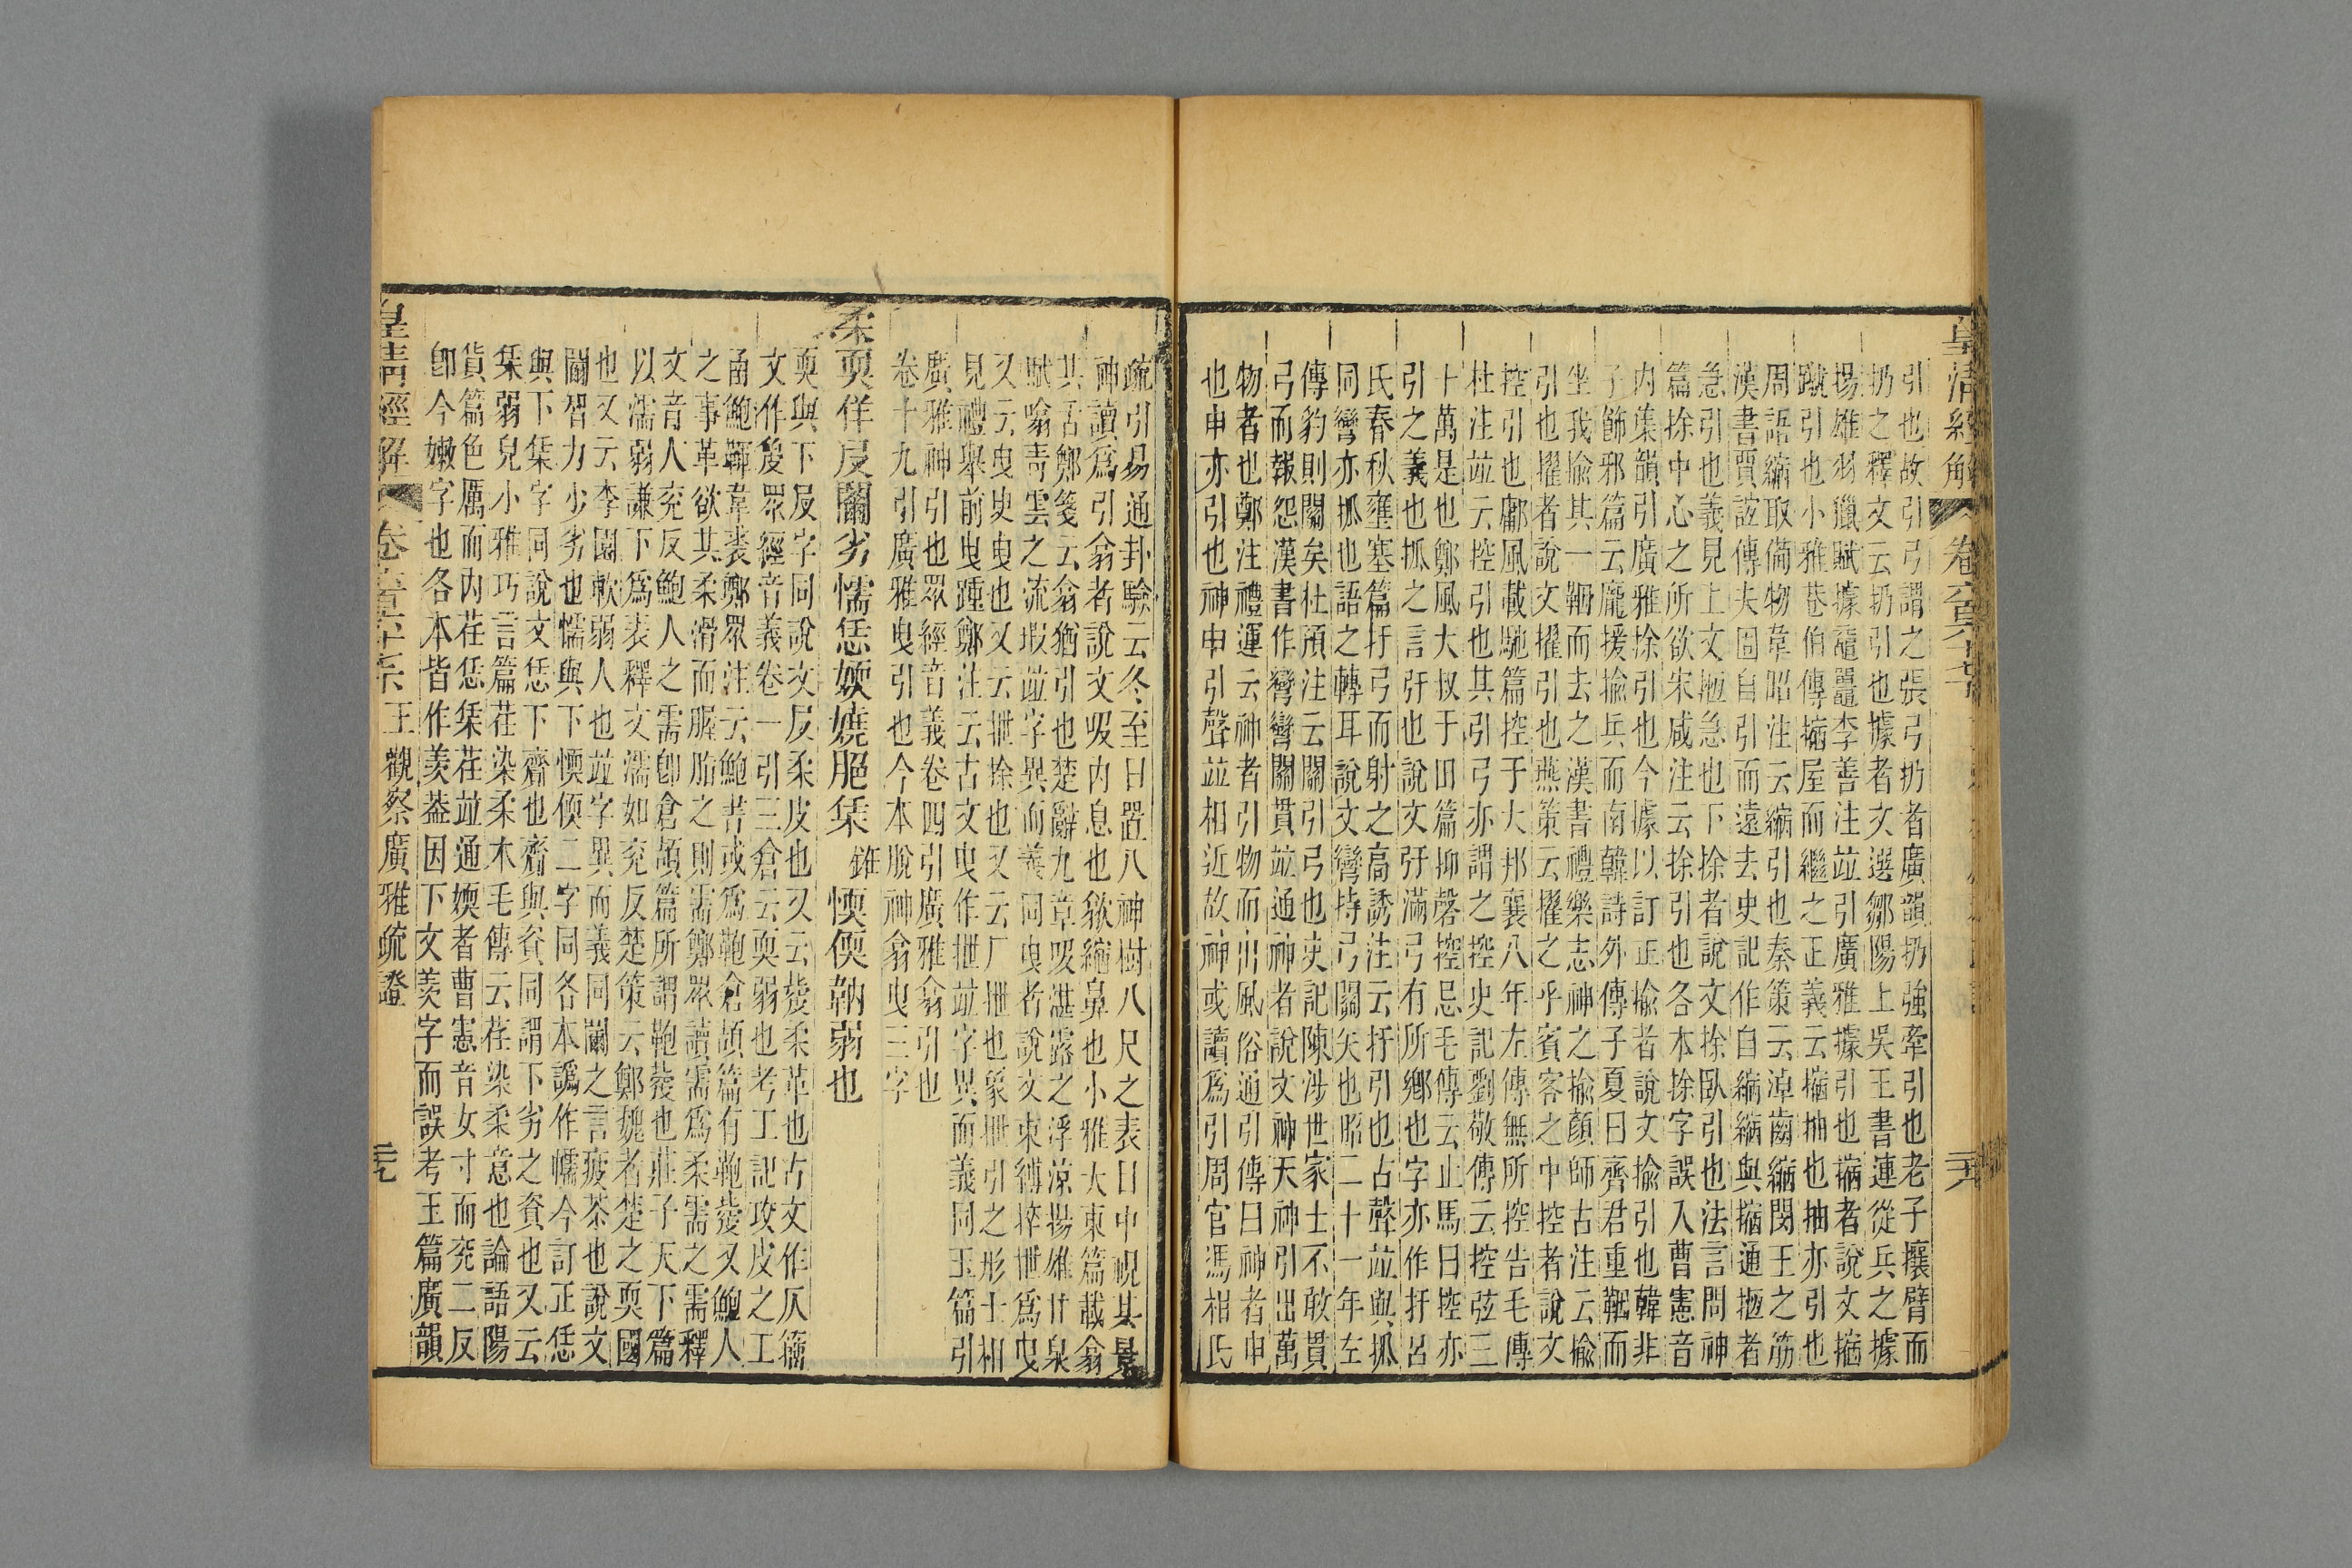 皇清經解 卷六百六十七
引也故引弓謂之張弓扔者廣韻扔強牽引也老子攘臂而
扔之釋文云扔引也據者文選鄒陽上吳王書連從兵之據
揚雄羽獵賦據黿鼉李善注竝引廣雅據引也摍者說文摍
蹴引也小雅巷伯傳摍屋而繼之正義云摍抽也抽亦引也
周語縮取備物韋昭注云縮引也秦策云淖齒縮閔王之筋
漢書賈誼傳夫固自引而遠去史記作自縮縮與摍通搄者
急引也義見上文搄急也下捈者說文捈臥引也法言問神
篇捈中心之所欲宋咸注云捈引也各本捈字誤入曹憲音
内集韻引廣雅捈引也今據以訂正揄者說文揄引也韓非
子飾邪篇云龐援揄兵而南韓詩外傳子夏曰齊君重鞇而
坐我揄其一鞇而去之漢書禮樂志神之揄顏師古注云揄
引也擢者說文擢引也燕策云擢之乎賓客之中控者說文
控引也鄘風載馳篇控于大邦襄八年左傳無所控告毛傳
杜注竝云控引也其引弓亦謂之控史記劉敬傳云控弦三
十萬是也鄭風大叔于田篇抑磬控忌毛傳云止馬曰控亦
引之義也抓之言弙也說文弙滿弓有所鄉也字亦作扜呂
氏春秋壅塞篇扜弓而射之高誘注云扜引也古聲竝與抓
同彎亦抓也語之轉耳說文彎持弓關矢也昭二十一年左
傳豹則關矣杜預注云關引弓也史記陳涉世家士不敢貫
弓而報怨漢書作彎彎關貫竝通神者說文神天神引出萬
物者也鄭注禮運云神者引物而出風俗通引傳曰神者申
也申亦引也神申引聲竝相近故神或讀爲引周官馮相氏
疏引易通卦驗云冬至日置八神樹八尺之表日中視其晷
神讀爲引翕者說文吸内息也歙縮鼻也小雅大東篇載翕
其舌鄭箋云翕猶引也楚辭九章吸湛露之浮涼揚雄甘泉
賦噏靑雲之流瑕竝字異而義同曳者說文束縛捽抴爲曳
又云曳臾曳也又云抴捈也又云厂抴也象抴引之形士相
見禮舉前曳踵鄭注云古文曳作抴竝字異而義同玉篇引
廣雅神引也眾經音義卷四引廣雅翕引也
卷十九引廣雅曳引也今本脫神翕曳三字
柔耎佯㞋闒劣懦恁媆嬈脃栠 錐 愞偄䩞弱也
耎與下㞋字同說文㞋柔皮也又云㼱柔革也古文作㲋籒
文作㲋眾經音義卷一引三倉云耎弱也考工記攻皮之工
函鮑韗韋裘鄭眾注云鮑書或爲鞄倉頡篇有鞄㼱又鮑人
之事革欲其柔滑而腥脂之則需鄭眾讀需爲柔需之需釋
文音人兖反鮑人之需卽倉頡篇所謂鞄㼱也莊子天下篇
以濡弱謙下爲表釋文濡如兖反楚策云鄭魏者楚之耎國
也又云李園軟弱人也竝字異而義同闒之言疲苶也說文
闒智力少劣也懦與下愞偄二字同各本譌作㦬今訂正恁
與下栠字同說文恁下齎也齎與貧同謂下劣之貧也又云
栠弱皃小雅巧言篇荏染柔木毛傳云荏染柔意也論語陽
貨篇色厲而内荏恁栠荏竝通媆者曹憲音女寸而兖二反
卽今嫩字也各本皆作䒱葢因下文䒱字而誤考玉篇廣韻
皇清經解 卷六百六十七 王觀察廣雅疏證 元九